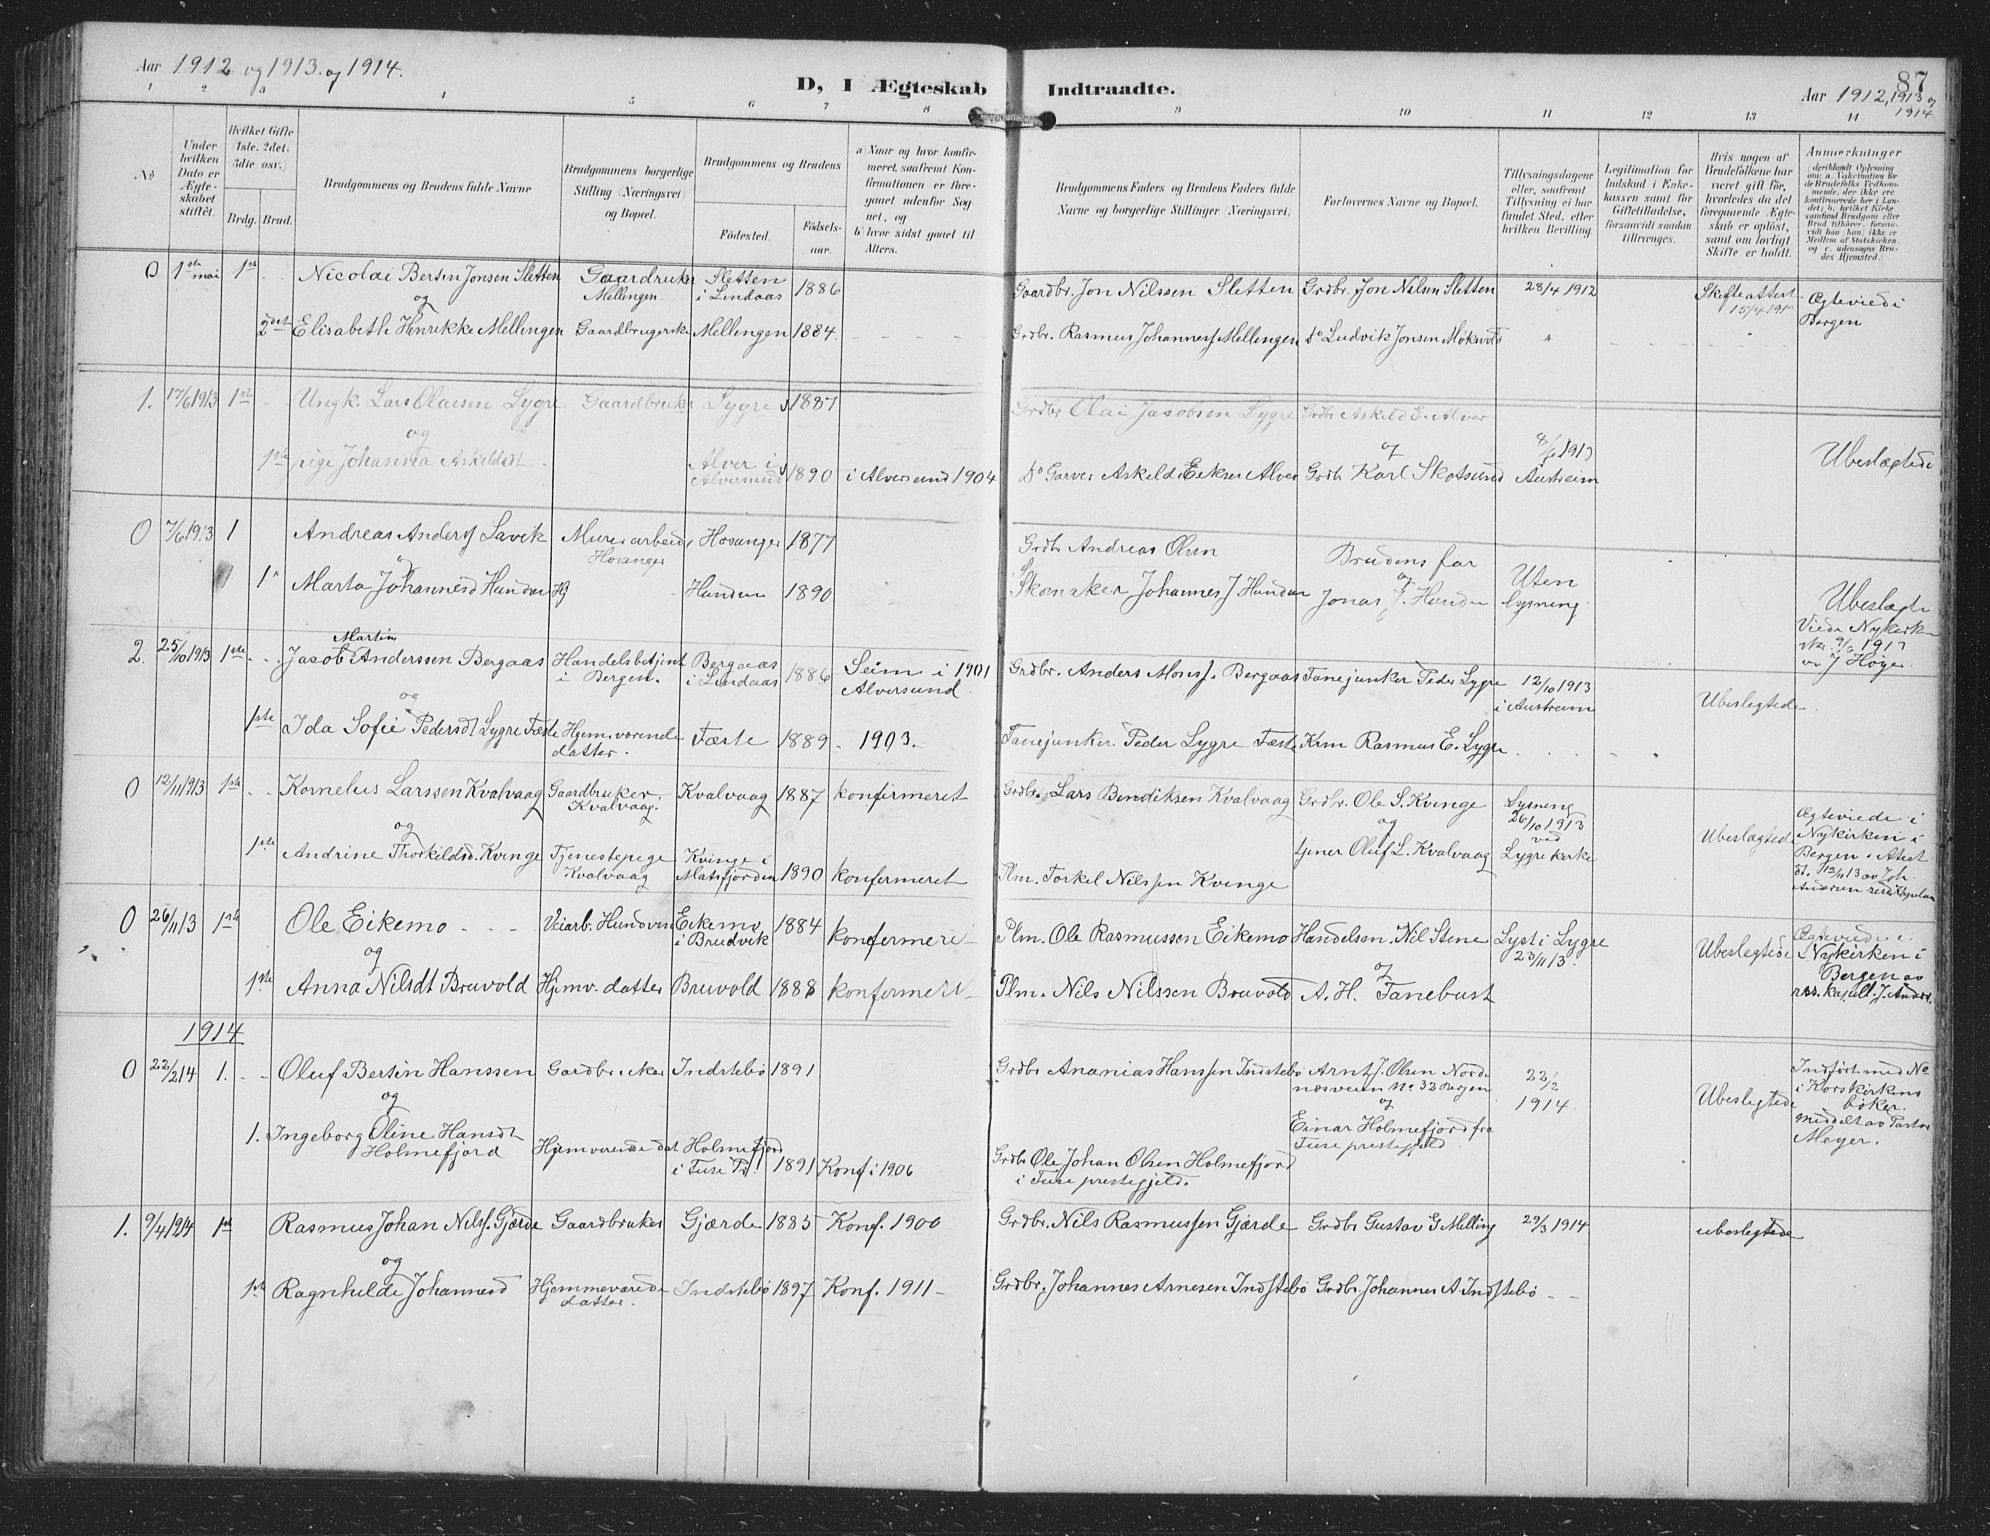 Aar 1912 og 1913. og 1914.
D, I Ægteskab Indtraadte.
87
Aar 1912, 1913 og
1914.
1 2 3 4 5 6 7 8 9 10 11 12 13 14
No
Under
hvilken
Dato er
Ægte-
skabet
stiftet.
Hvilket Gifte
1ste, 2det,
3die osv.
Brdg. Brud.
Brudgommens og Brudens fulde Navne
Brudgommens borgerlige
Stilling (Næringsvei)
og Bopæl.
Brudgommens og Brudens
Fødested.
Fødsels-
aar.
a) Naar og hvor konfir-
meret, saafremt Kon-
firmationen er fore-
gaaet udenfor Sog-
net, og
b) hvor sidst gaaet til
Alters.
Brudgommens Faders og Brudens Faders fulde
Navne og borgerlige Stillinger (Næringsvei)
Forlovernes Navne og Bopæl.
Tillysningsdagene
eller, saafremt
Tillysning ei har
fundet Sted, efter
hvilken Bevilling.
Legitimation for
Indskud i Enke-
kassen samt for
Giftetilladelse,
forsaavidt saadan
tiltrænges.
Hvis nogen af
Brudefolkene har
været gift før,
hvorledes da det
foregaaende Ægte-
skab er opløst,
samt om lovligt
Skifte er holdt.
Anmærkninger
(deriblandt Oplysning
om: a. Vakcination for
de Brudefolks Vedkom-
mende, der ikke ere
konfirmerede her i Lan-
det; b. hvilket Kirke-
samfund Brudgom eller
Brud tilhører, forsaa-
vidt han (hun) ikke er
Medlem af Statskirken,
og c. udensogns Bru-
des Hjemsted.)
0 1ste mai 1ste Nicolai Bertin Jonsen Sletten Gaardbruker Mellingen Sletten i Lindaas 1886 Gaardbr. Jon Nilssen Sletten Grdbr. Jon Nilsen Sletten 28/4 1912 Skifteattest 15/4 Ægteviede i Bergen
og
2det Elisabeth Henrikke Mellingen Gaardbrugerske Mellingen 1884. Grdbr. Rasmus Johannesf Mellingen Do Ludvik Jonsen "
1. 17/6 1913 1ste Ungk. Lars Olaisen Lygre Gaardbruker Lygre 1887 Grdbr Olai Jacobsen Lygre Grdbr Askeld E. Alver
og og 8/6 1913 Austreim Ubeslægtede
1ste pige Johanna Askeldsdt Alver i Alversund 1890 i Alversund 1904 Do Garver Askeld Eriksen Alver Grdb Karl Skotsund
0 7/6 1913 1 Andreas Andersf Lavik Murerarbeid Hosanger Hosanger 1877 Grdbr Andreas Olsen Brudens far
og og Uten lysning.
1 Marta Johannesd Hundvin Hj Hundvin 1890 Skomaker Johannes J Hundvin Jonas J. Hundvin Ubeslægte
Viede Nykirke 7/6 1913 av J Høyer
2. 25/10 1913 1ste Jacob Martin Anderssen Bergaas Handelsbetjent i Bergen. Bergaas i Lindaas 1886 Seim i 1901 Alversund. Grdbr. Anders Monsf. Bergaas Fanejunker Peder Lygre 12/10 1913 i Austreim Ubeslegtede
og
1ste Ida Sofie Pedersdt Lygre Fæste Hjemværende datter. Fæste 1889 1903. Fanejunker Peder Lygre Fæste Krm Rasmus E. Lygre
0 12/11 1913 1ste Kornelius Larssen Kvalvaag Gaardbruker. Kvalvaag. Kvalvaag 1887 konfirmeret Grdbr. Lars Bendiksen Kvalvaag Grdbr. Ole S. Kvinge Lysning 26/10 1913 ved Lygre kirke Ubeslægtede Ægteviede i Nykirken i Bergen. Atest dt. 12/11 13 av Joh.
og og
1ste Andrine Thorkildsd. Kvinge Tjenestepige Kvalvaag Kvinge i Matsfjorden 1890 konfermeret Plm. Torkel Nilssen Kvinge tjener Oluf L. Kvalvaag
0 26/11 13 1ste Ole Eikemo Veiarb. Hundvin Eikemo i Bruvik 1884 konfermeret Plm. Ole Rasmussen Eikemo Handelsm. Nil Stene Lyst i Lygre 23/11 13. Ubeslegtede Ægteviede i Nykirken i Bergen av res. kapell. J. Anders.
og og
1ste Anna Nilsdt Bruvold Hjemv. datter Bruvold 1888 konfermeret Plm. Nils Nilssen Bruvold A. H. Tanebust
1914
0 22/2 14 1. Oluf Bertin Hanssen Gardbruker Indstebø 1891 Grdbr Ananias Hanssen Indstebø Arnt J. Olsen Nordnæsveien No 32 Bergen 22/2 1914. Ubeslegtede Indført med No i Korskirkens bøker. meddelt av Pastor Meyer.
og og
1. Ingeborg Oline Hansdt Holmefjord Hjemværende dat Holmefjord i Fuse Pr. 1891 Konf i 1906 Grdbr Ole Johan Olsen Holmefjord i Fuse prestegjeld. Einar Holmefjord fra Fuse prestegjeld.
1. 9/4 1914 1ste Rasmus Johan Nilsf. Gjærde Gaardbruker Gjærde 1885 Konf. 1900 Grdbr. Nils Rasmussen Gjærde Grdbr Gustav G Melling 29/3 1914 ubeslegtede
og
1ste Ragnhilde Johannesd Hjemmeværende datter. Indstebø 1897 Konf. 1911 Grdbr. Johannes Arnesen Indstebø Grdbr. Johannes A. Indstebø